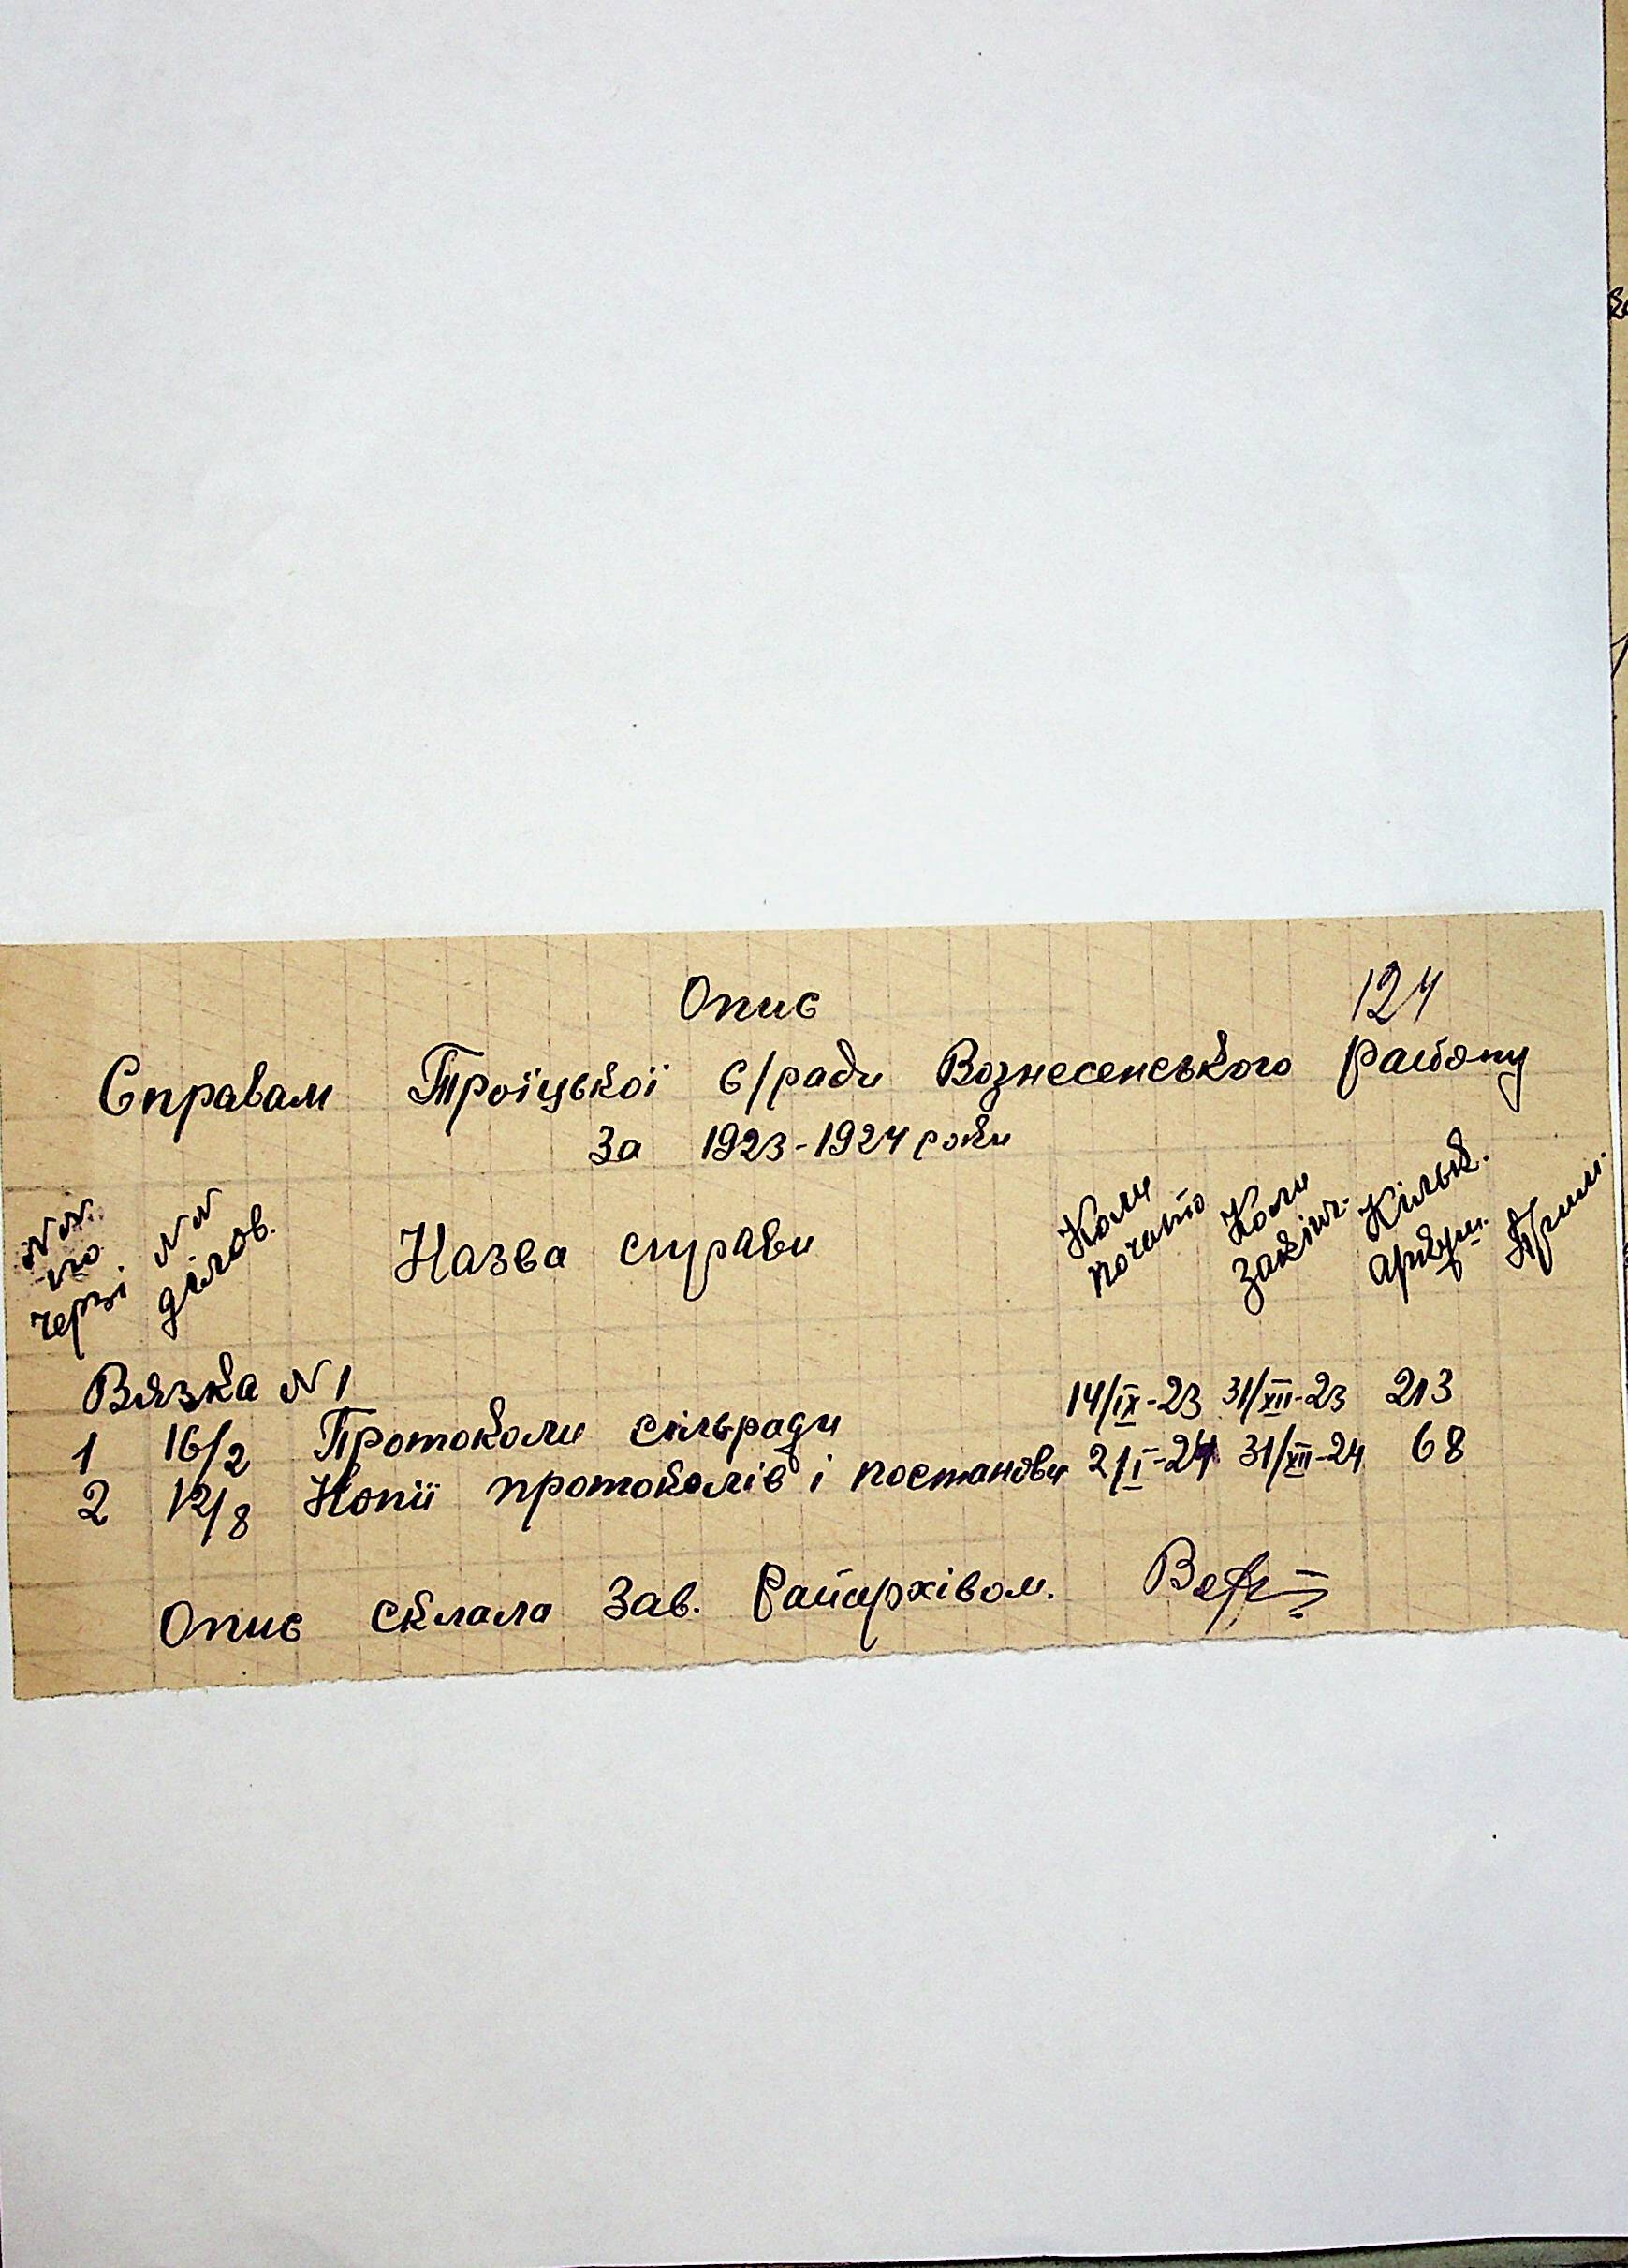 Опис
124
Справам Троїцької с/ради Вознесенського району
За 1923-1924 роки
№№ по черзі
№№ ділов.
Назва справи
Коли почато
Коли закінч.
Кільк. аркуш.
Прим.
Вязка №1
1 16/2 Протоколи сільради 14/IX-23 31/XII-23 213
2 12/8 Копії протоколів і постанови 2/I-24 31/XII-24 68
Опис склала Зав. Райархівом.